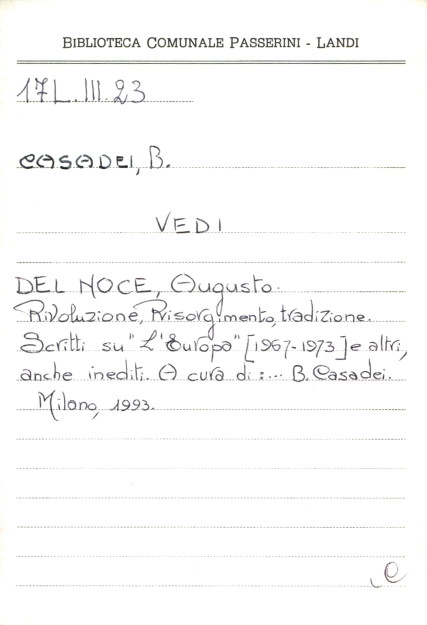 BIBLIOTECA COMUNALE PASSERINI - LANDI
17L.III.23
CASADEI, B.
VEDI
DEL NOCE, Augusto.
Rivoluzione, Risorgimento, tradizione.
Scritti su "L'Europa" [1967-1973] e altri,
anche inediti. A cura di:... B. Casadei.
Milano, 1993.